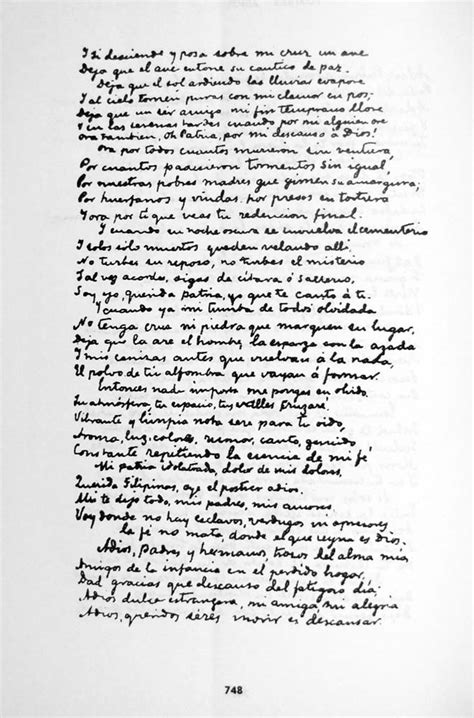 Y si desciende y posa sobre mi cruz un ave
Deja que el ave entone su cantico de paz.
Deja que el sol ardiendo las lluvias evapore
Y al cielo tornen puras con mi clamor en pos;
Deja que un ser amigo mi fin temprano llore
Y en las serenas tardes cuando por mi alguien ore
Ora tambien, oh Patria, por mi descanso á Dios!
Ora por todos cuantos murieron sin ventura,
Por cuantos padecieron tormentos sin igual,
Por nuestras pobres madres que gimen su amargura;
Por huerfanos y viudas, por presos en tortura
Y ora por ti que veas tu redencion final.
Y cuando en noche oscura se envuelva el cementerio
Y solos sólo muertos queden velando allí,
No turbes su reposo, no turbes el misterio
Tal vez acordes, oigas de citara ó salterio,
Soy yo, querida Patria, yo que te canto á ti.
Y cuando ya mi tumba de todos olvidada
No tenga cruz ni piedra que marquen su lugar,
Deja que la are el hombre, la esparza con la azada
Y mis cenizas antes que vuelvan á la nada,
El polvo de tu alfombra que vayan á formar.
Entonces nada importa me pongas en olvido.
Tu atmósfera, tu espacio, tus valles cruzaré.
Vibrante y limpia nota seré para tu oido,
Aroma, luz, colores, rumor, canto, gemido
Constante repitiendo la esencia de mi fé
Mi patria idolatrada, dolor de mis dolores,
Querida Filipinas, oye el postrer adios.
Ahi te dejo todo, mis padres, mis amores.
Voy donde no hay esclavos, verdugos ni opresores
la fé no mata, donde el que reyna es Dios.
Adios, Padres y hermanos, trozos del alma mia
Amigos de la infancia en el perdido hogar,
Dad gracias que descanso del fatigoso dia;
Adios dulce estrangera, mi amiga, mi alegria
Adios, queridos séres morir es descansar.
748